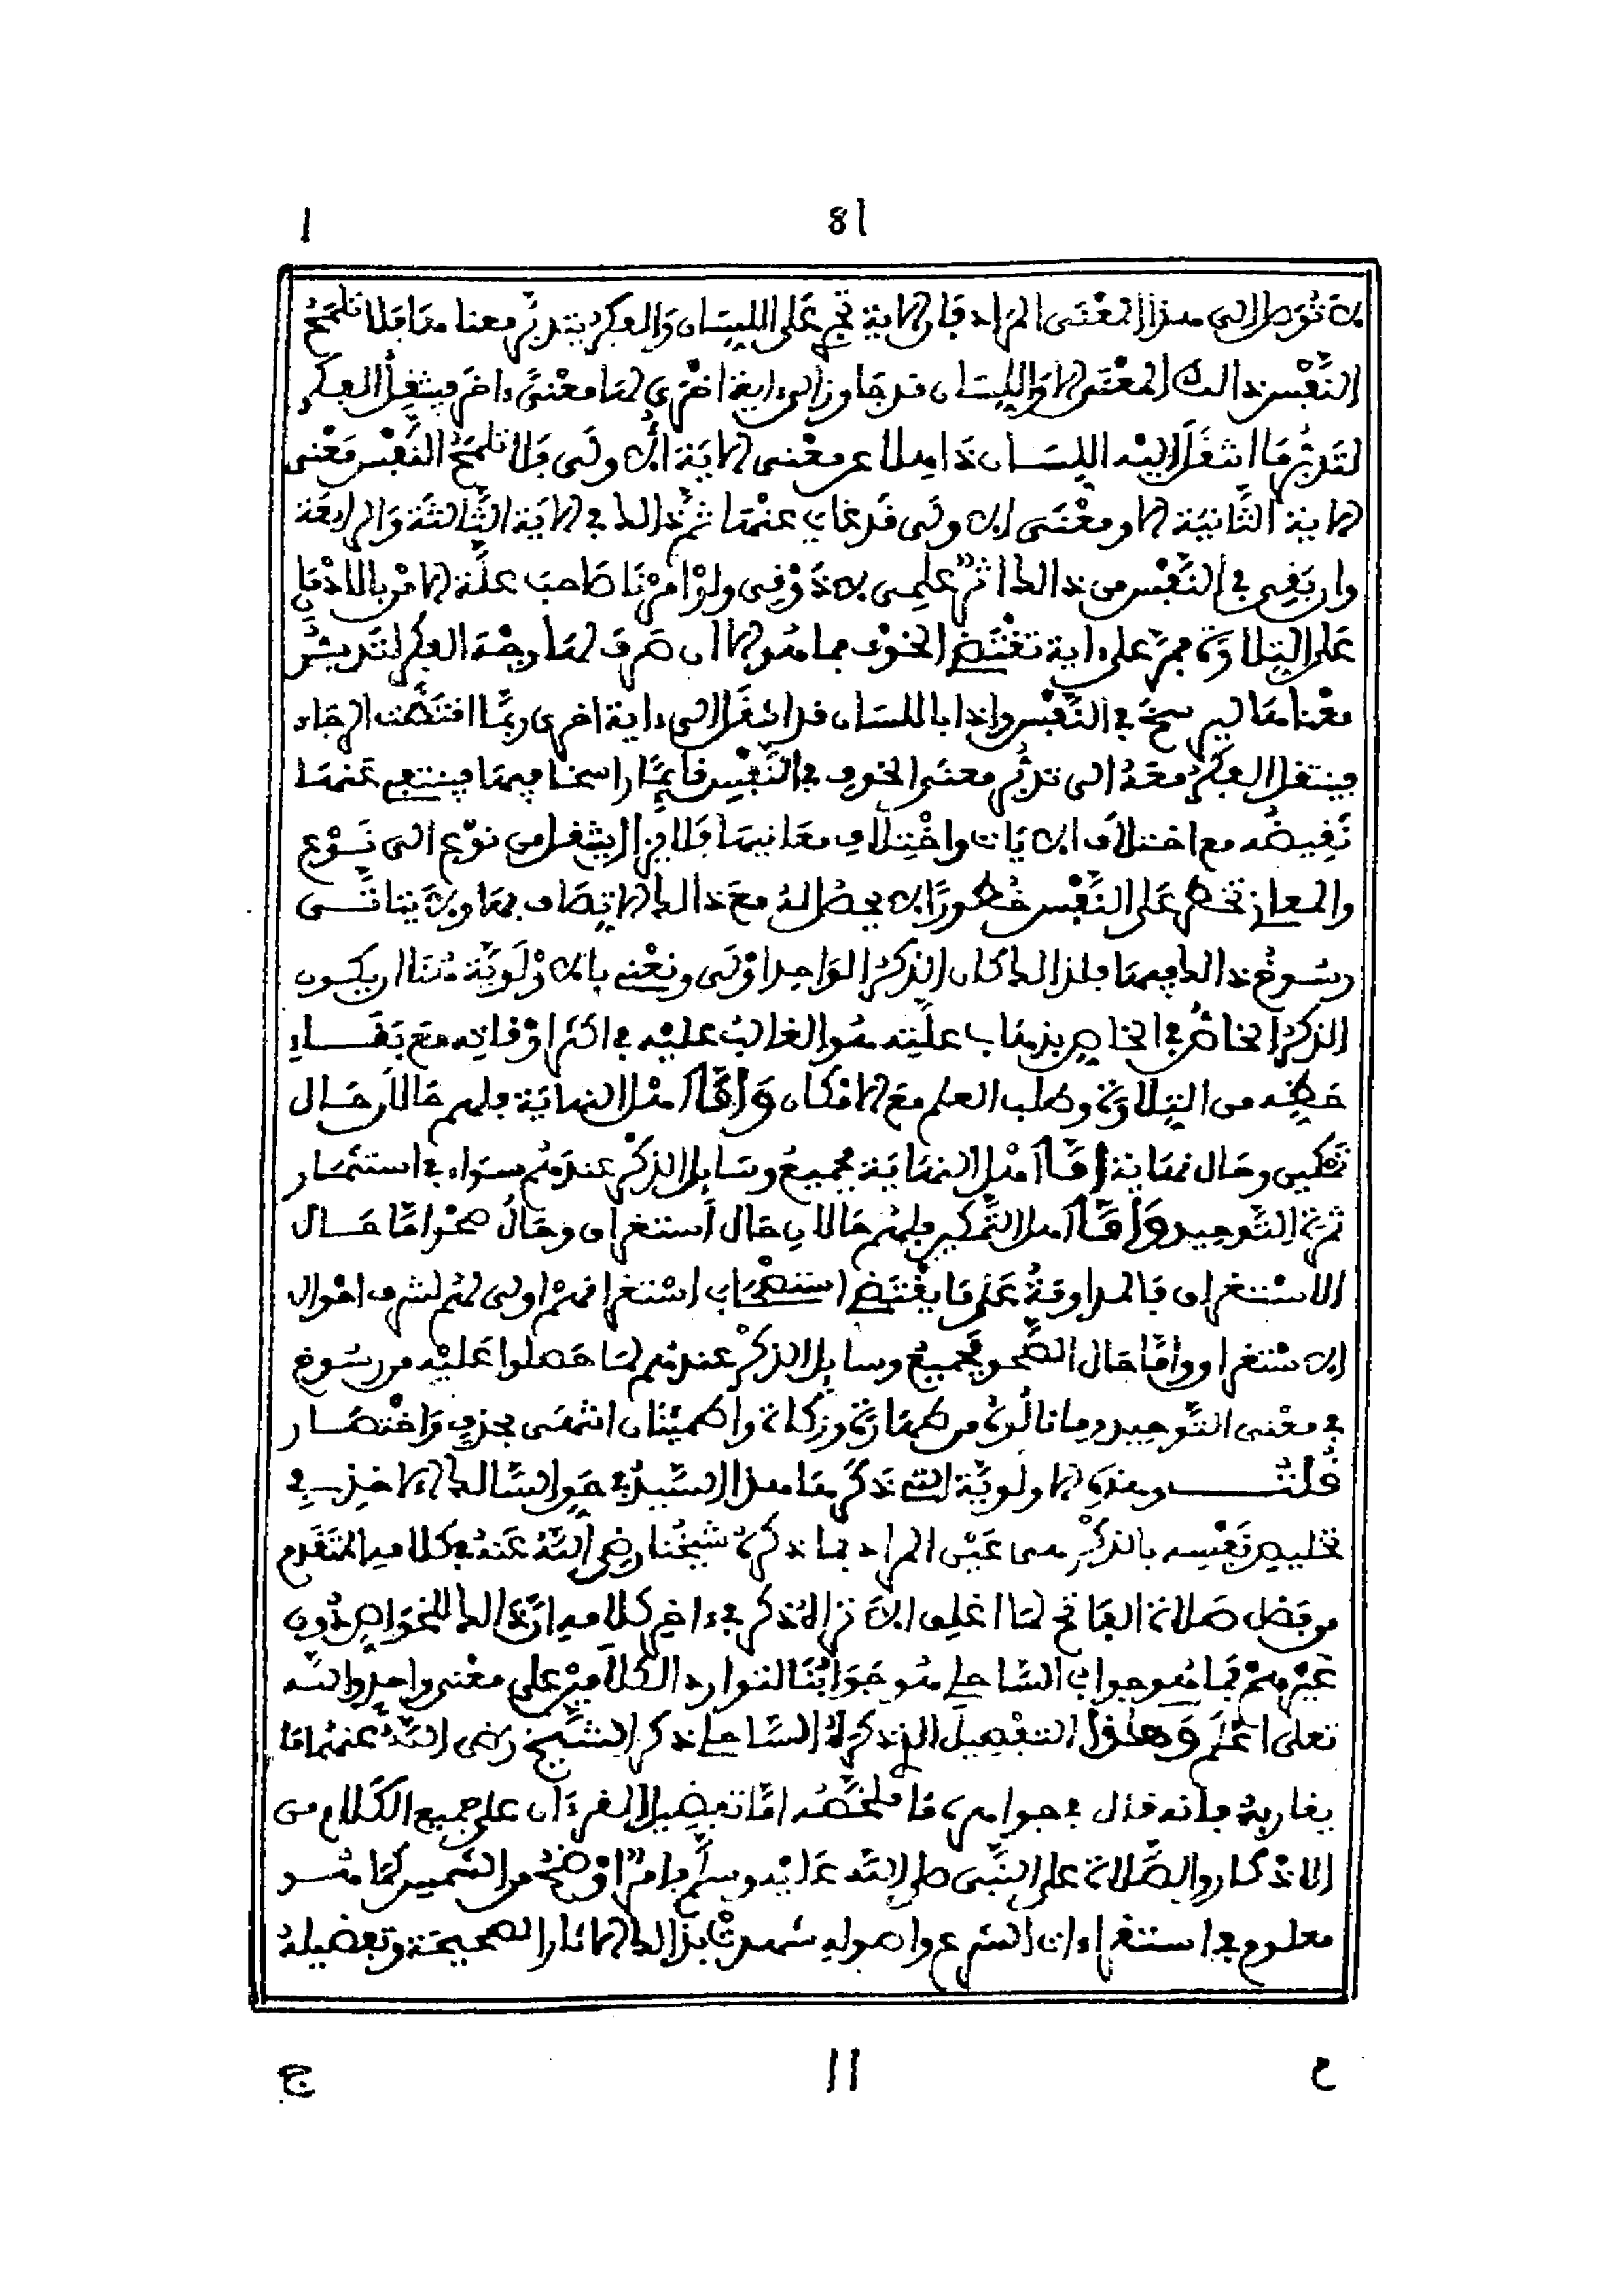 81 ا
لا توصل الى هذا المعنى المراد فان الاية تجر على اللسان والفكر يتدبر معناها فلا تلمح
النفس ذالك المعنى الا واللسان قد جاوز الى ءاية اخرى لها معنى ءاخر فيثغل الفكر
لتدبر ما انثغل اليه اللسان ذاهلا عن معنى الاية الاولى فلا تلمح النفس معنى
الاية الثانية الا ومعنى الاولى قد غاب عنها ثم ذالك في الاية الثالثة والرابعة
وان بقى في النفس من ذالك اثر علمى لا ذوقى ولو امرنا صاحب علة الامر بالادمان
على التلاوة فمر على ءاية تقتضى الخوف فما هو الا ان صرف لها وجهة الفكر لتدبر
معناها ليرسخ في النفس واذا باللسان قد انثغل الى ءاية اخرى ربما اقتضت الرجاء
فينتقل الفكر معه الى تدبر معنى الخوف في النفس قايما راسخا فيها فينتفى عنها
نقيضه مع اختلاف الايات واختلاف معانيها فلا يزال ينثغل من نوع الى نوع
والمعانى تخطر على النفس خطورا لا يحصل له مع ذالك الاتصاف بها ولا يتاتى
رسوخ ذالك فيها فلذالك كان الذكر الواحد اولى ونعنى بالاولوية هنا ان يكون
الذكر الخاص في الخاص بذهاب علته هو الغالب عليه في اكثر اوقاته مع بقاء
حظه من التلاوة وطلب العلم مع الامكان واما اهل النهاية فلهم حالان حال
تمكين وحال نهاية اما اهل النهاية فجميع وسايل الذكر عندهم سواء في استثمار
ثمرة التوحيد واما اهل التمكين فلهم حالان حال استغراق وحال صحو اما حال
الاستغراق فالمداومة على ما يقتضى استصحاب استغراقهم اولى لهم لشرف احوال
الاستغراق واما حال الصحو فجميع وسايل الذكر عندهم لما حصلوا عليه من رسوخ
في معنى التوحيد وما نالوه من طهارة وزكاة واطمئنان انتهى بحذف واختصار
قلت وهذه الاولوية التى ذكرها هذا السيد في حق السالك الاخذ في
تخليص نفسه بالذكر هى عين المراد بما ذكره شيخنا رضى الله عنه في كلامه المتقدم
من فضل صلاة الفاتح لما اغلق الا تراه ذكر في ءاخر كلامه ان ذالك للخواص دون
غيرهم فما هو جواب الساحلى هو جوابنا لتوارد الكلامين على معنى واحد والله
تعلى اعلم وهذا التفصيل الذى ذكره الساحلى ذكر الشيخ رضى الله عنه ما
يقاربه فانه قال في جواهره ما ملخصه اما تفضيل القرءان على جميع الكلام من
الاذكار والصلاة على النبى صلى الله عليه وسلم فامر اوضح من الشمس كما هو
معلوم في استقراءات الشرع واصوله شهدت بذالك الاثار الصحيحة وتفضيله
ح 11 ج